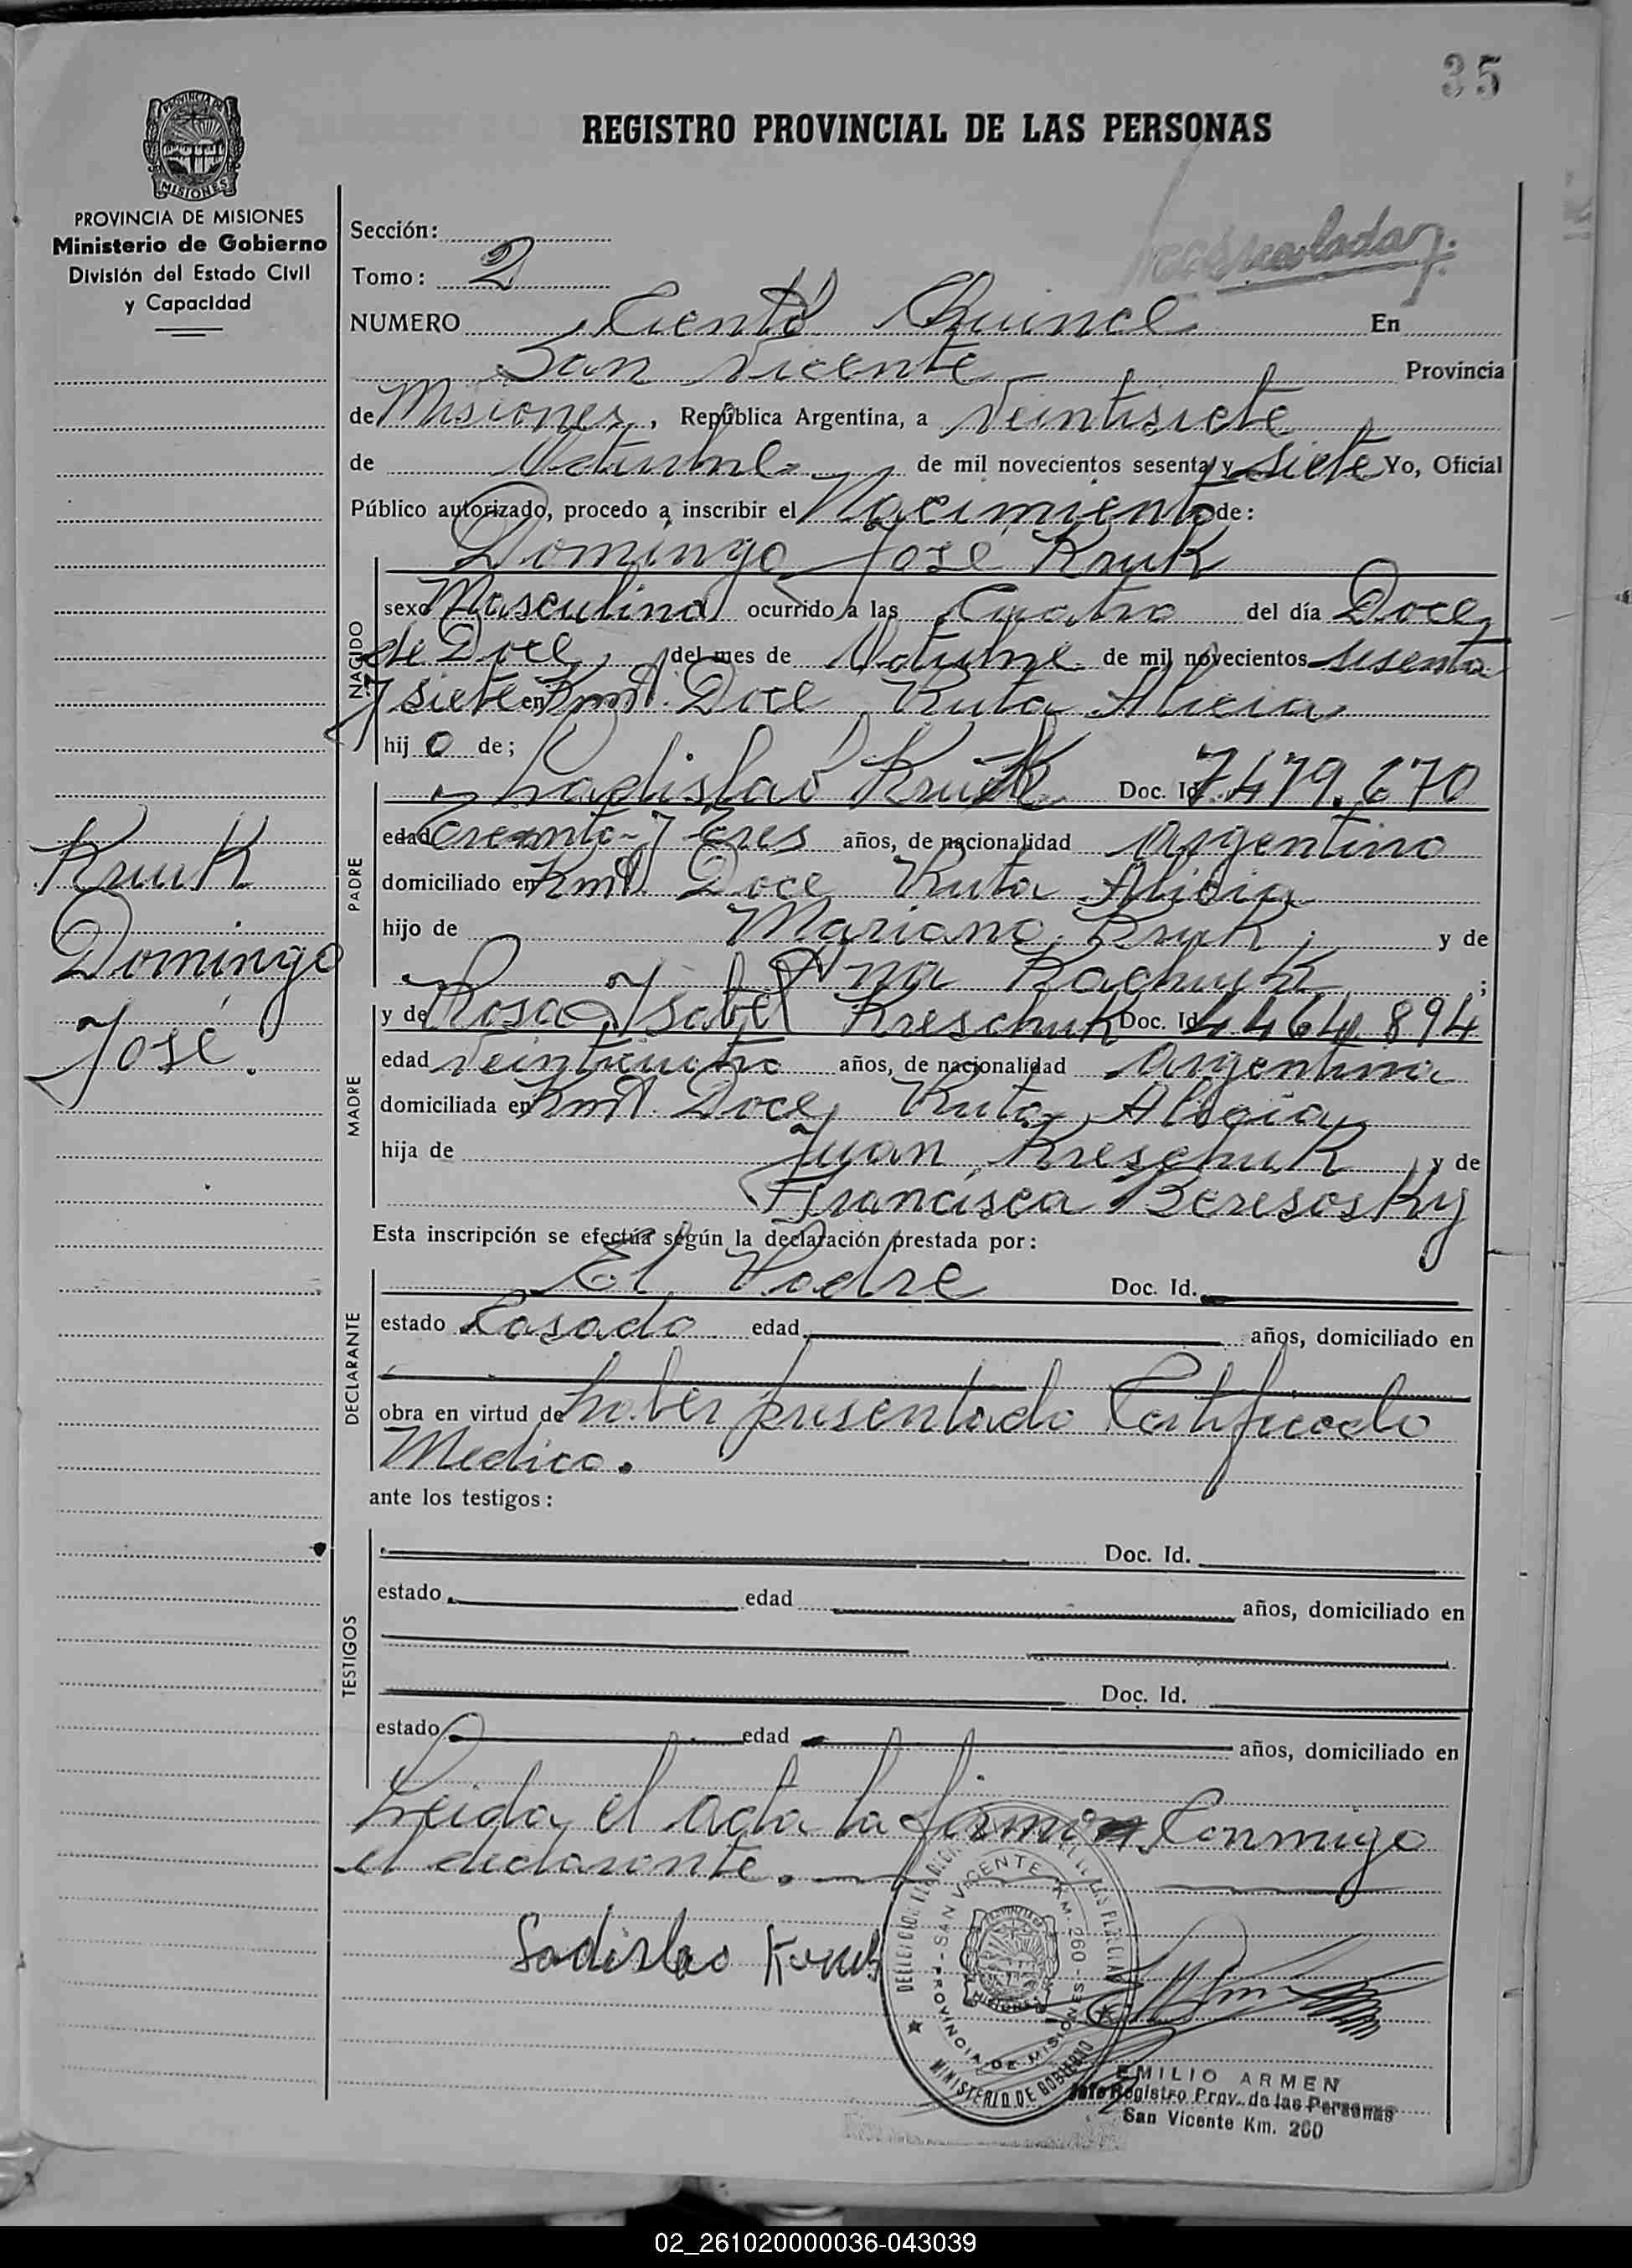 35
REGISTRO PROVINCIAL DE LAS PERSONAS
PROVINCIA DE
MISIONES
PROVINCIA DE MISIONES
Ministerio de Gobierno
División del Estado Civil
y Capacidad
Sección:
Tomo: 2
NUMERO Ciento Quince En
San Vicente Provincia
de Misiones, República Argentina, a Veintisiete
de Octubre de mil novecientos sesenta y siete Yo, Oficial
Público autorizado, procedo a inscribir el Nacimiento de:
Domingo José Kruk
NACIDO
sexo Masculino ocurrido a las Cuatro del día Doce,
de Doce, del mes de Octubre de mil novecientos sesenta
y siete en Kmt. Doce Ruta Alicia
hijo de;
PADRE
Ladislao Kruk Doc. Id. 7.479.670
edad Treinta y Tres años, de nacionalidad Argentino
domiciliado en Kmt. Doce Ruta Alicia
hijo de Mariano Kruk; y de
Ana Kachuk;
Kruuk
Domingo
José.
MADRE
y de Rosa Ysabel Kreschuk Doc. Id. 4464894
edad Veinticuatro años, de nacionalidad Argentina
domiciliada en Kmt. Doce, Ruta Alicia
hija de Juan Kreschuk, y de
Francisca Beresosky
Esta inscripción se efectúa según la declaración prestada por:
DECLARANTE
El Padre Doc. Id.
estado Casado edad años, domiciliado en
obra en virtud de haber presentado Certificado
Medico.
ante los testigos:
TESTIGOS
Doc. Id.
estado edad años, domiciliado en
Doc. Id.
estado edad años, domiciliado en
Leida el acta la firman Conmigo
el declarante.
Ladislao Kruk
SAN VICENTE KM. 260 - PROVINCIA DE MISIONES
MINISTERIO DE GOBIERNO
EMILIO ARMEN
Jefe Registro Prov. de las Personas
San Vicente Km. 260
02_261020000036-043039